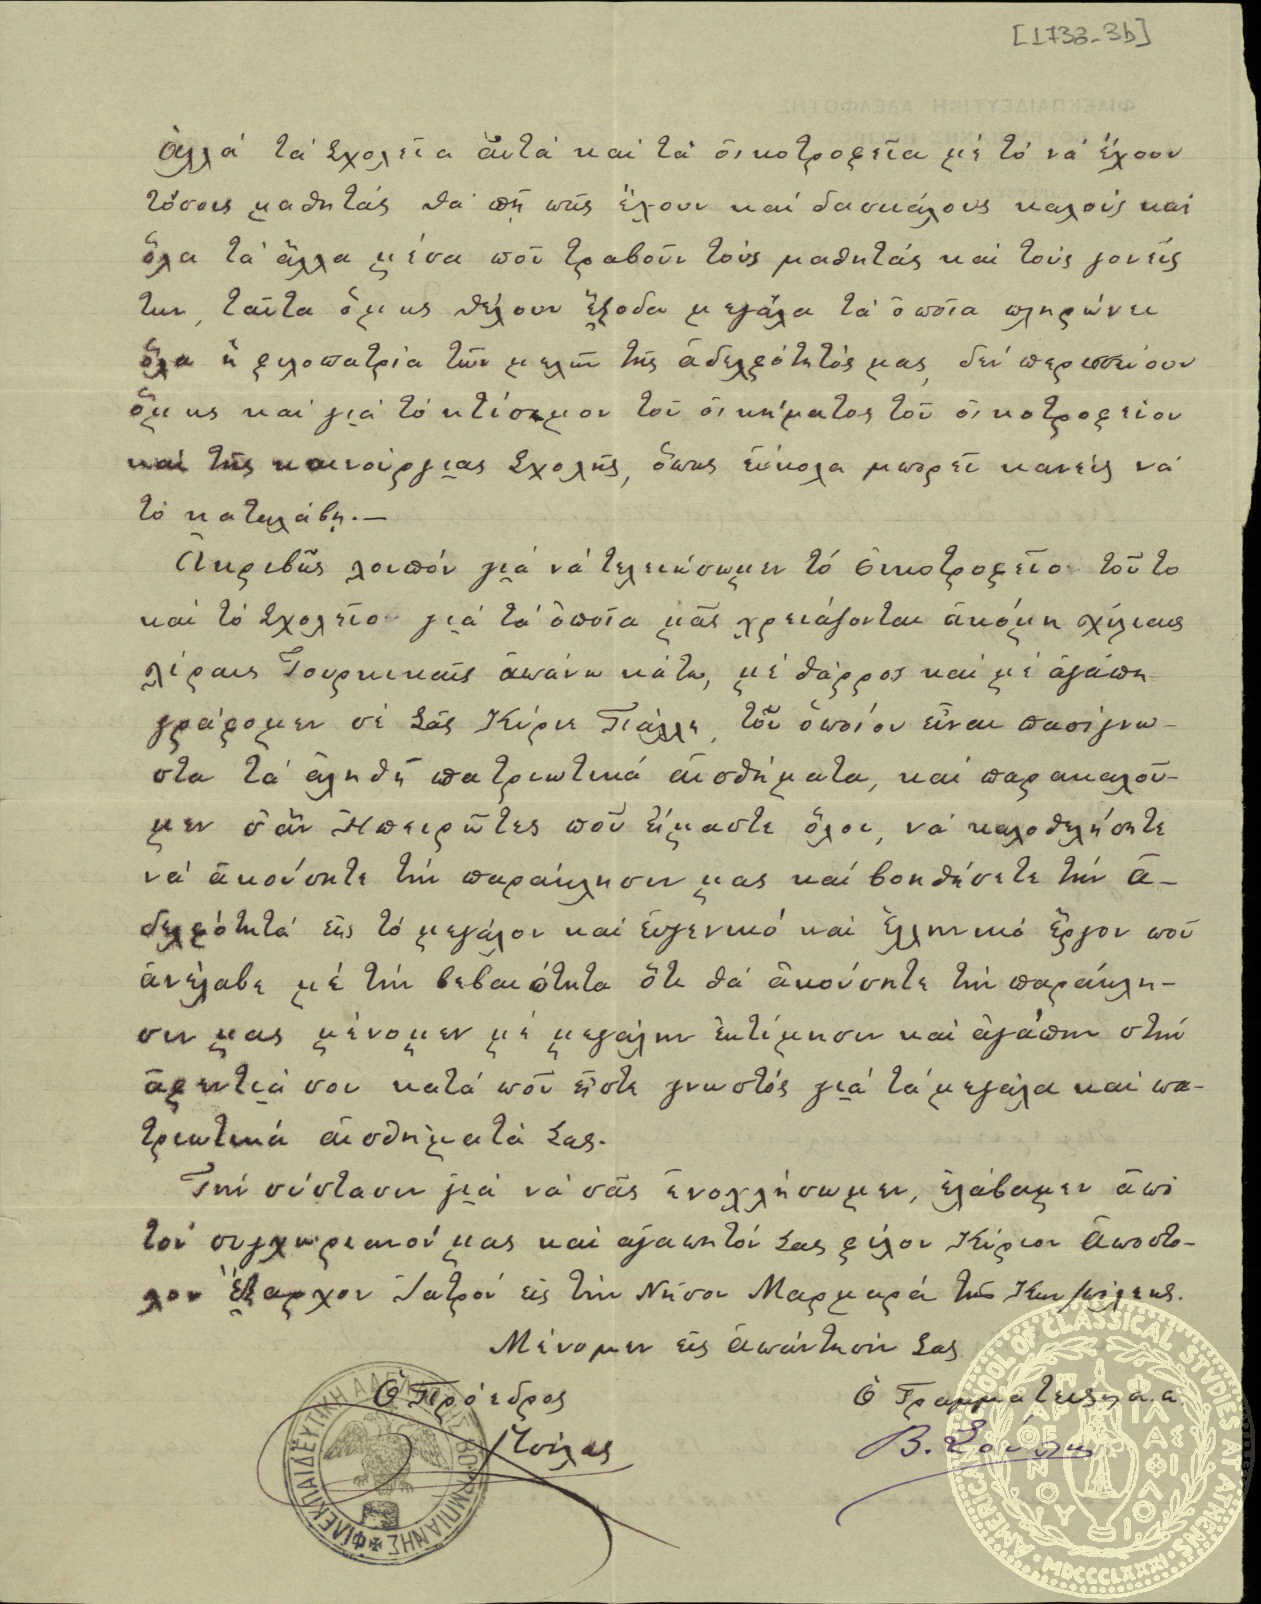 [1738-3b]
Ἀλλά τά Σχολεῖα αὐτά καί τά οἰκοτροφεῖα μέ τό νά ἔχουν
τόσους μαθητάς θά πῇ πῶς ἔχουν καί δασκάλους καλούς καί
ὅλα τά ἄλλα μέσα ποῦ τραβοῦν τούς μαθητάς καί τούς γονεῖς
των, ταῦτα ὅμως θέλουν ἔξοδα μεγάλα τά ὁποῖα πληρώνει
ὅλα ἡ φιλοπατρία τῶν μελῶν τῆς ἀδελφότητός μας, δέν περισσεύουν
ὅμως καί γιά τό κτίσιμον τοῦ οἰκήματος τοῦ οἰκοτροφείου
καί τῆς καινούργιας Σχολῆς, ὅπως εὔκολα μπορεῖ κανείς νά
τό καταλάβῃ.—
Ἀκριβῶς λοιπόν γιά νά τελειώσωμεν τό Οἰκοτροφεῖο τοῦτο
καί τό Σχολεῖο γιά τά ὁποῖα μᾶς χρειάζονται ἀκόμη χίλιαις
λίραις Τουρκικαῖς ἀπάνω κάτω, μέ θάρρος καί μέ ἀγάπη
γράφομεν σέ Σᾶς Κύριε Γιάλλε, τοῦ ὁποίου εἶναι πασίγνω-
στα τά ἀληθῆ πατριωτικά αἰσθήματα, καί παρακαλοῦ-
μεν σἄν Ἠπειρῶτες ποῦ εἴμαστε ὅλοι, νά καλοθελήσητε
νά ἀκούσητε τήν παράκλησιν μας καί βοηθήσετε τήν ἀ-
δελφότητά εἰς τό μεγάλον καί εὐγενικό καί Ἑλληνικό ἔργον ποῦ
ἀνέλαβε μέ τήν βεβαιότητα ὅτι θά ἀκούσητε τήν παράκλη-
σιν μας μένομεν μέ μεγάλην ἐκτίμησιν καί ἀγάπην στήν
ἀφεντιά σου κατά ποῦ εἶστε γνωστός γιά τά μεγάλα καί πα-
τριωτικά αἰσθήματά Σας.
Τήν σύστασιν γιά νά σᾶς ἐνοχλήσωμεν, ἐλάβαμεν ἀπό
τόν συγχωριανόν μας καί ἀγαπητόν Σας φίλον Κύριον Ἀπόστο-
λον Ἔξαρχον Ἰατρόν εἰς τήν Νῆσον Μαρμαρᾶ τῆς Κων/πόλεως.
Μένομεν εἰς ἀπάντησίν Σας
Ὁ Πρόεδρος
Ὁ Γραμματεύς
Β.
ΦΙΛΕΚΠΑΙΔΕΥΤΙΚΗ ΑΔΕΛΦΟΤΗΣ ΒΟΥΡΜΠΙΑΝΗΣ
AMERICAN SCHOOL OF CLASSICAL STUDIES AT ATHENS
MDCCCLXXXI